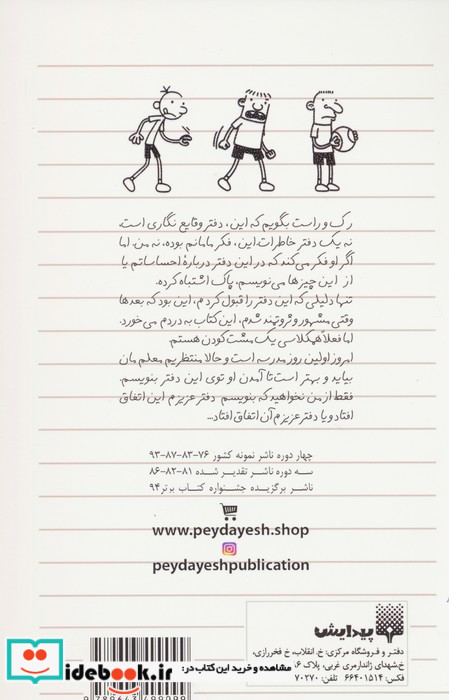 رک و راست بگویم که این، دفتر وقایع نگاری است،
نه یک دفتر خاطرات. این، فکر مامانم بوده، نه من. اما
اگر او فکر می‌کند که در این دفتر دربارهٔ احساساتم یا
از این چیزها می‌نویسم، پاک اشتباه کرده.
تنها دلیلی که این دفتر را قبول کردم، این بود که بعدها
وقتی مشهور و ثروتمند شدم، این کتاب به دردم می خورد.
اما فعلاً همکلاسی یک مشت کودن هستم.
امروز اولین روز مدرسه است و حالا منتظریم معلم مان
بیاید و بهتر است تا آمدن او توی این دفتر بنویسم.
فقط از من نخواهید که بنویسم دفتر عزیزم این اتفاق
افتاد و یا دفتر عزیزم آن اتفاق افتاد...
چهار دوره ناشر نمونه کشور ۷۶-۸۳-۸۷-۹۳
سه دوره ناشر تقدیر شده ۸۱-۸۲-۸۶
ناشر برگزیده جشنواره کتاب برتر ۹۴
www.peydayesh.shop
peydayeshpublication
پیدایش
دفتر و فروشگاه مرکزی: خ. انقلاب، خ فخررازی،
خ شهدای ژاندارمری غربی، پلاک ۸۶
فکس: ۶۶۴۰۱۵۱۴ تلفن: ۷۰۲۷۰
مشاهده و خرید این کتاب در:
idebook.ir